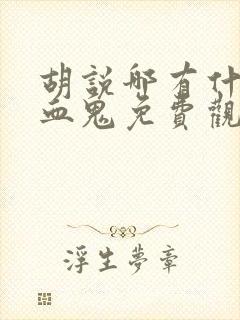 胡說哪有什
血鬼免費觀
浮生夢章